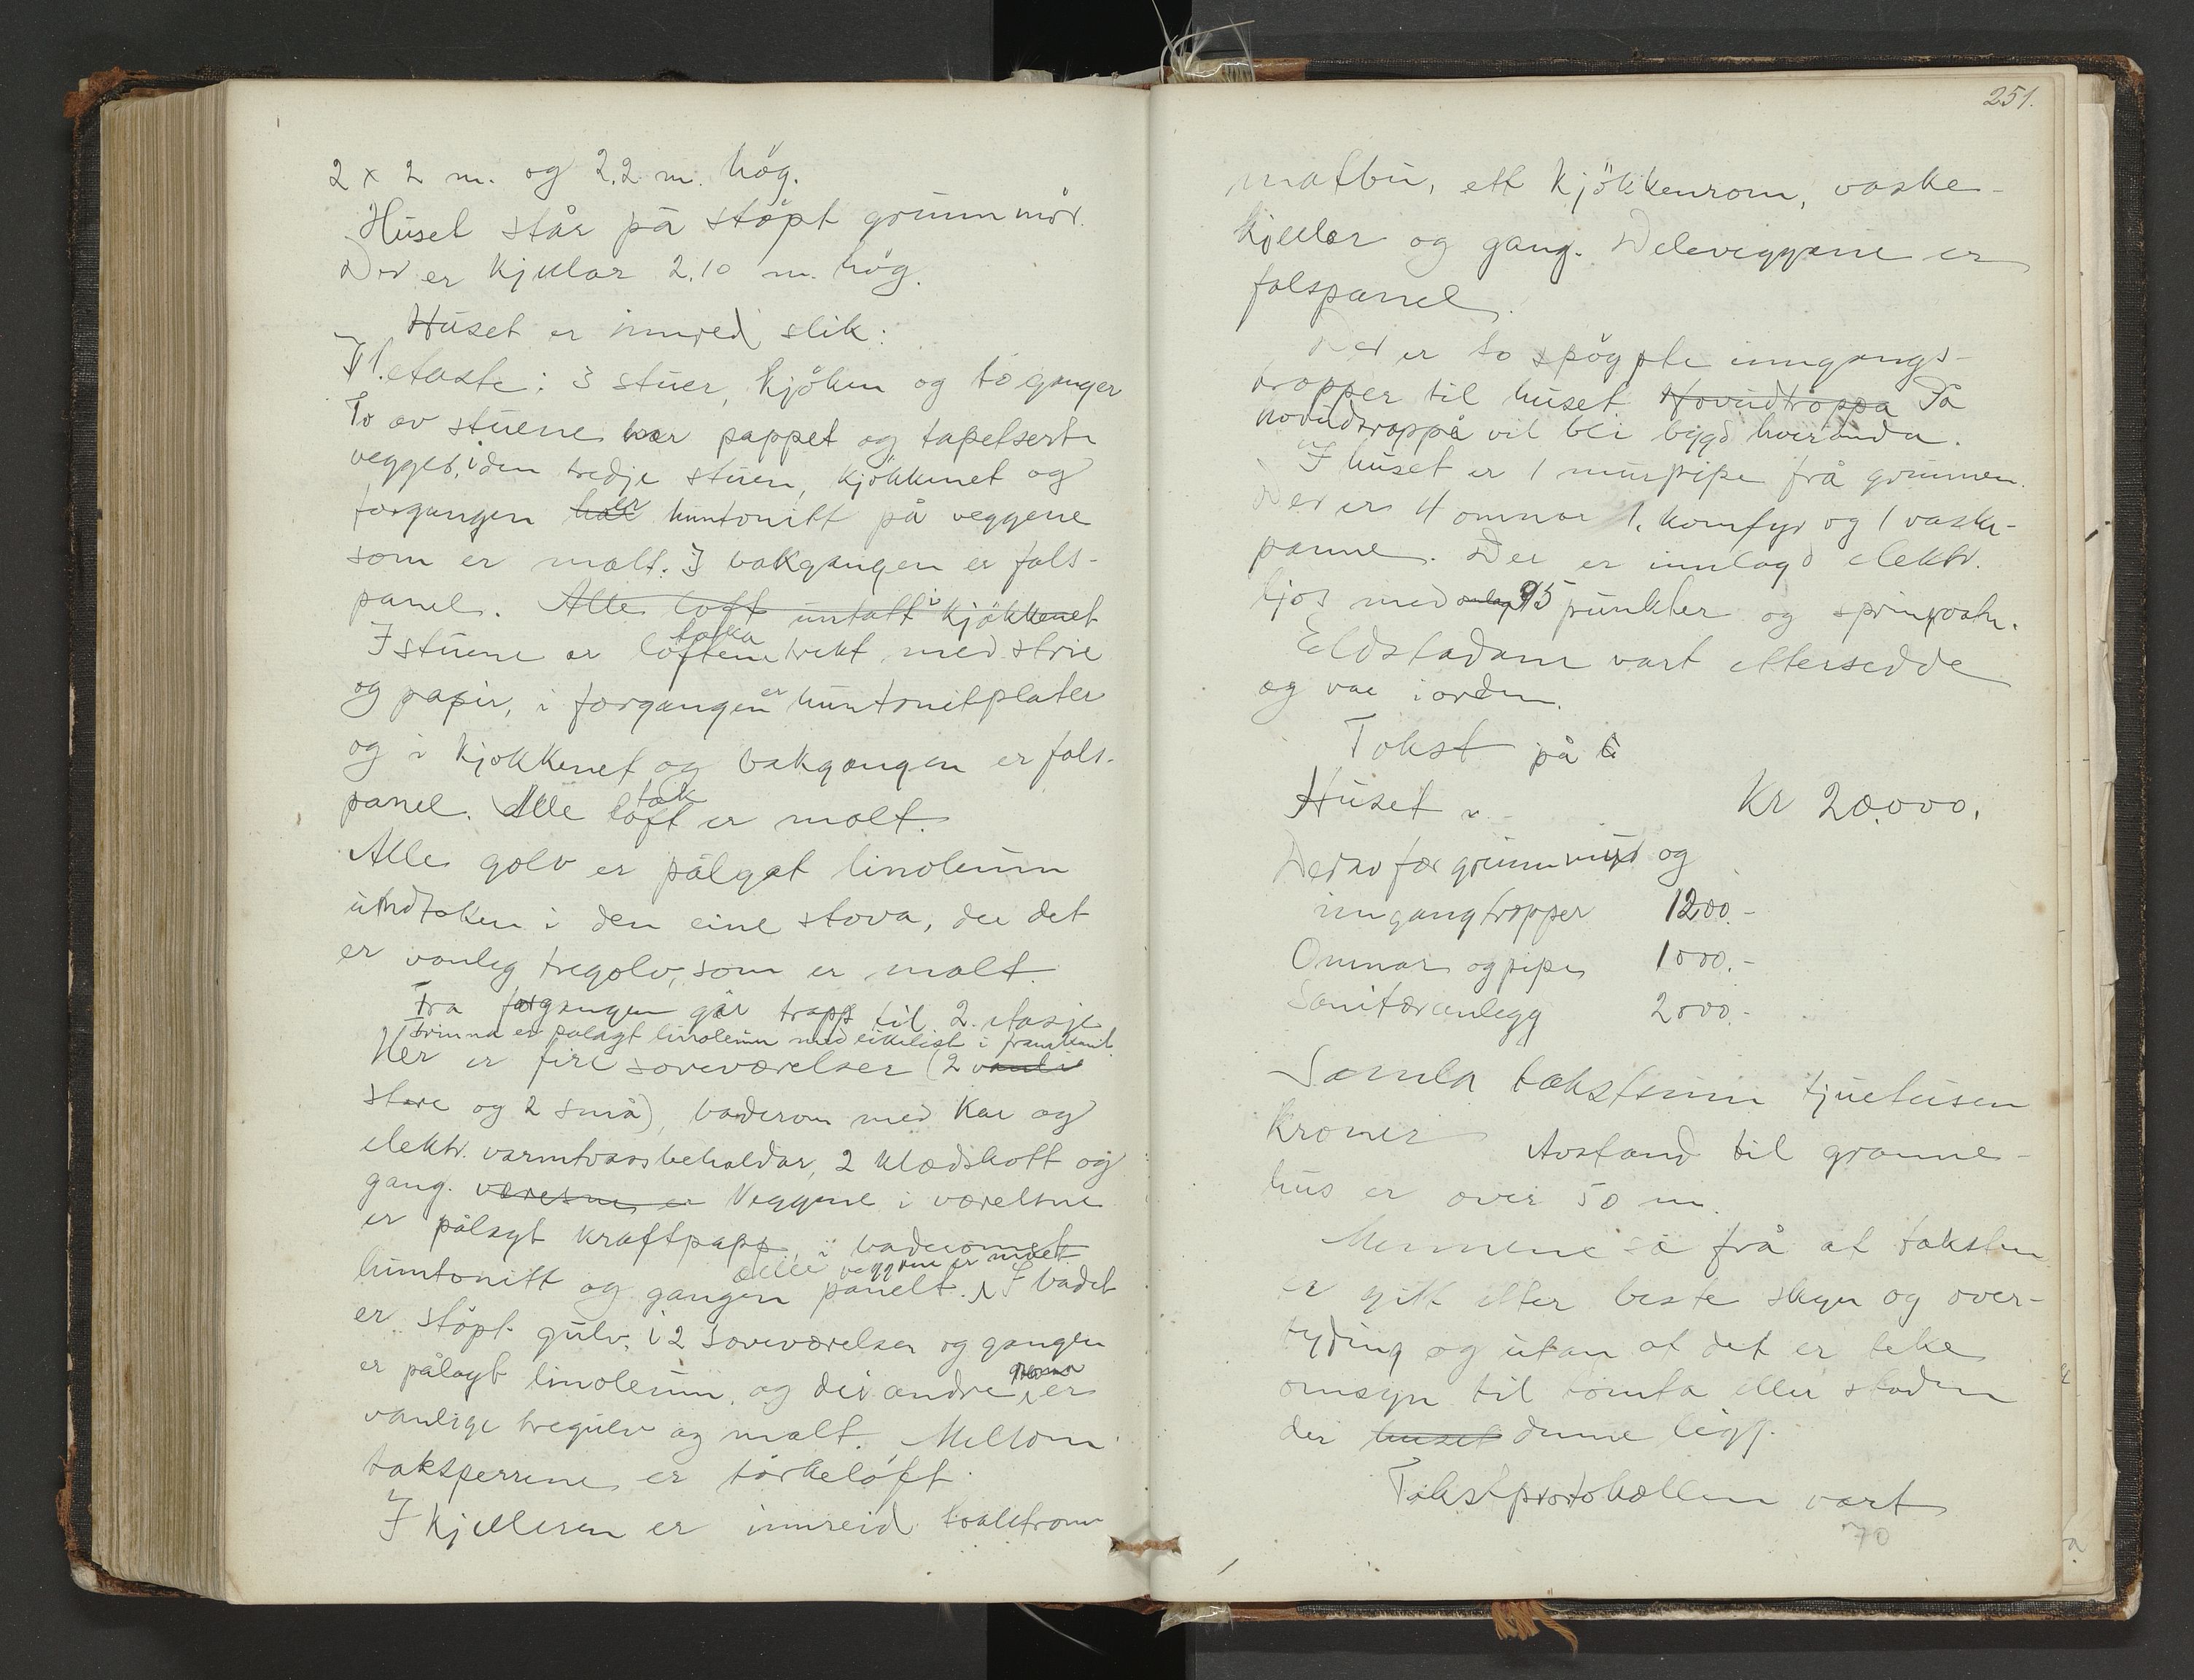 2 x 2 m. og 2,2 m. hög.
Huset står på støpt grunnmur.
Der er kjellar 2,10 m. høg.
Huset er innred slik:
I 1. etaste: 3 stuer, kjøken og to ganger
To av stuene har pappet og tapetserte
vegger, i den tredje stuen, kjøkkenet og
forgangen har er huntonitt på veggene
som er malt. I bakgangen er fals-
panel. Alle loft untatt i kjøkkenet
I stuene er loftene takka trekt med strie
og papir, i forgangen er huntonitplater
og i kjøkkenet og bakgangen er fals-
panel. Alle loft tak er malt.
Alle golv er pålagt linoleum
undtaken i den eine stova, der det
er vanleg tregolv, som er malt.
Fra forgangen går trapp til 2. etasje
Trinna er pålagt linoleum med eikelist i framkant.
Her er fire soveværelser (2
store og 2 små), baderom med kar og
elektr. varmtvassbehaldar, 2 klædskott og
gang. værelsene er Veggene i værelsene
er pålagt kraftpapp, i baderomet
huntonitt og gangen panelt. Alle veggene er malt. I badet
er støpt gulv, i 2 soveværelser og gangen
er pålagt linoleum, og dei andre romma er
vanlige tregulv og malt. Mellom
taksperrene er tørkeloft.
I kjelleren er innreid toalettrom
251.
matbu, ett kjøkkenrom, vaske-
kjellar og gang. Deleveggene er
falspanel.
Der er to støypte inngangs-
trapper til huset Hovudtroppa På
hovudtroppa vil bli bygd
I huset er 1 murpipe frå grunnen.
Der er 4 omnar 1, komfyr og 1 vaske-
panne. Der er innlagd elektr.
ljos med 95 punkter og springvatn.
Eldstadane vart ettersedde
og var i orden.
Takst på
Huset Kr 20.000.
Derav for grunnmur og
inngangtropper 1200.-
Omnar og pipe 1000.-
Sanitæranlegg 2000.-
Samla takstsum tjuetusen
kroner Avstand til granne-
hus er over 50 m.
Mennene sa frå at taksten
er gitt etter beste skyn og over-
tyding og utan at det er teke
omsyn til tomta eller staden
der huset denne ligg.
Takstprotokollen vart
70